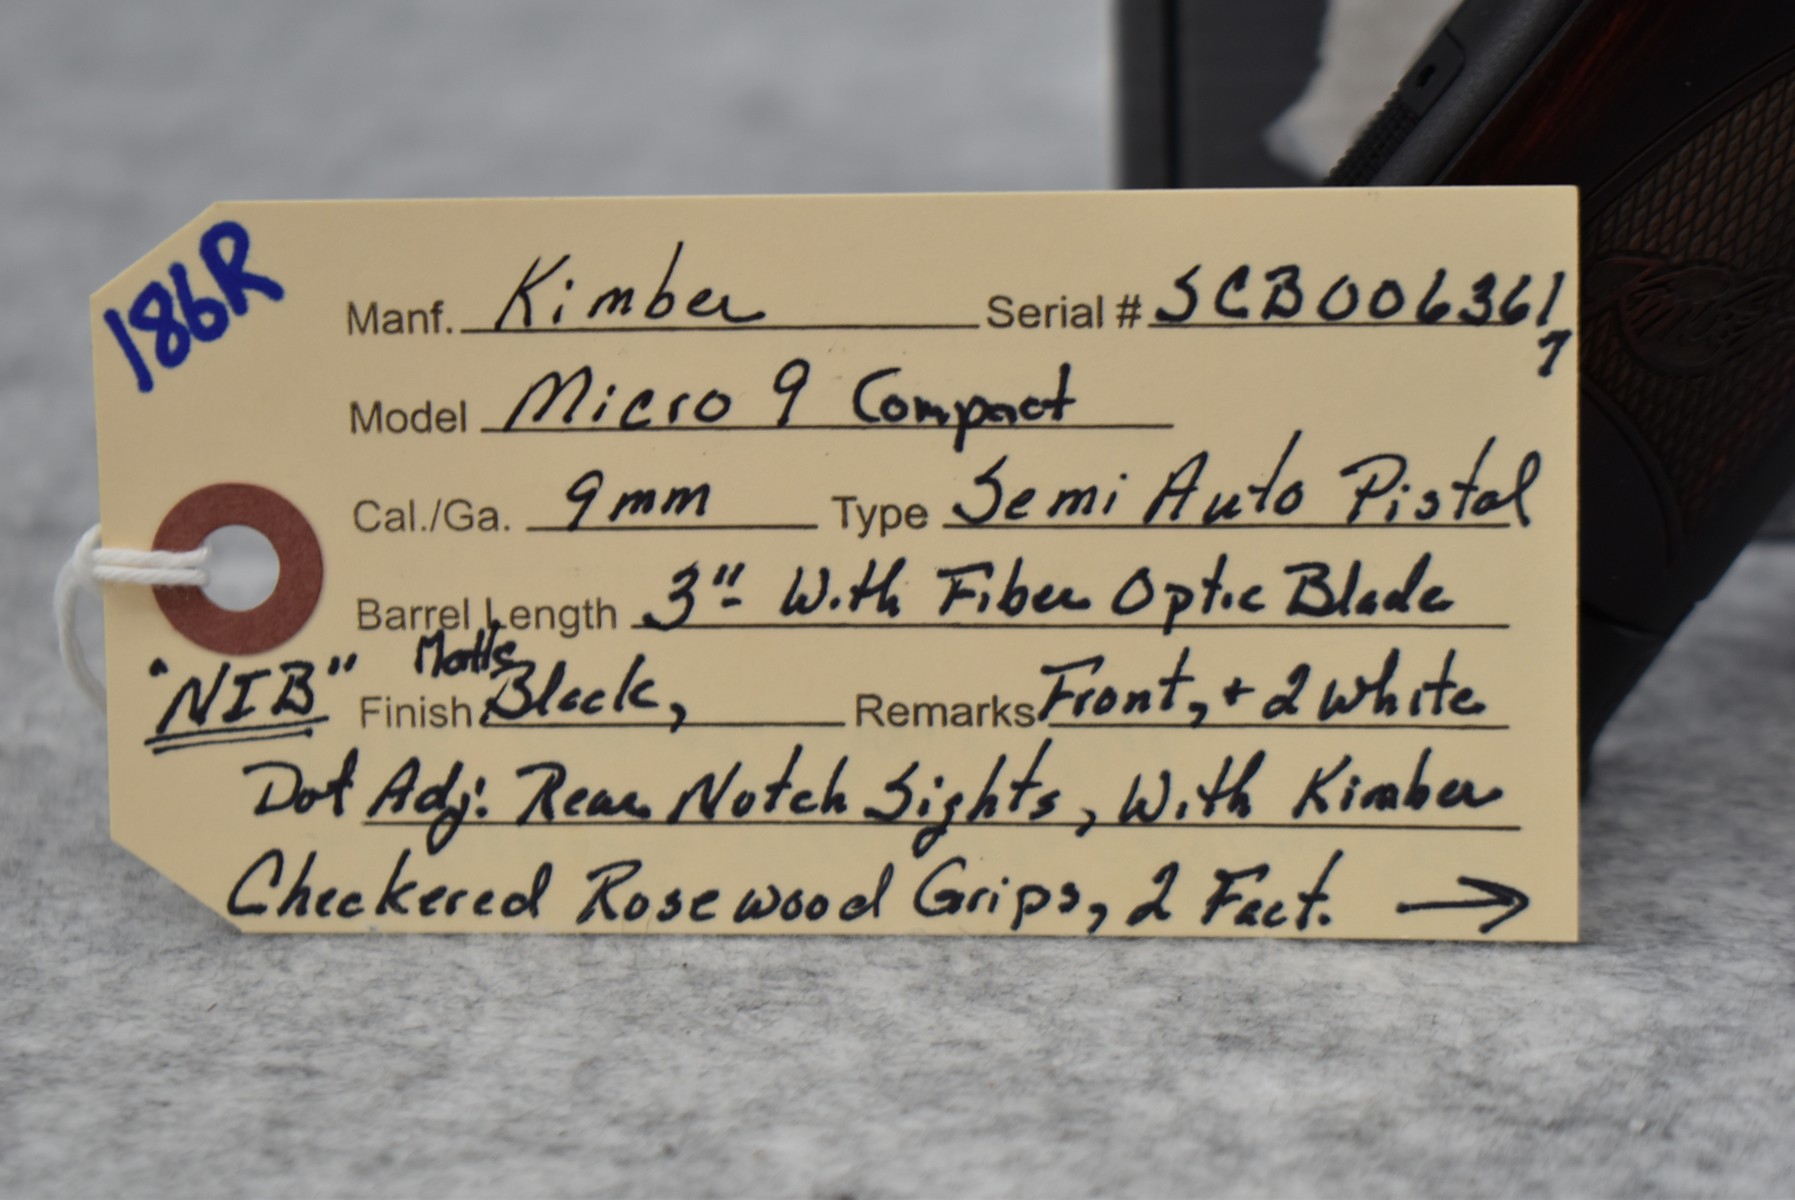 186R
Manf. Kimber Serial # SCB006361
7
Model Micro 9 Compact
Cal./Ga. 9mm Type Semi Auto Pistol
Barrel Length 3" With Fiber Optic Blade
"NIB" Finish Matte Black, Remarks Front, + 2 White
Dot Adj: Rear Notch Sights, With Kimber
Checkered Rosewood Grips, 2 Fact. →